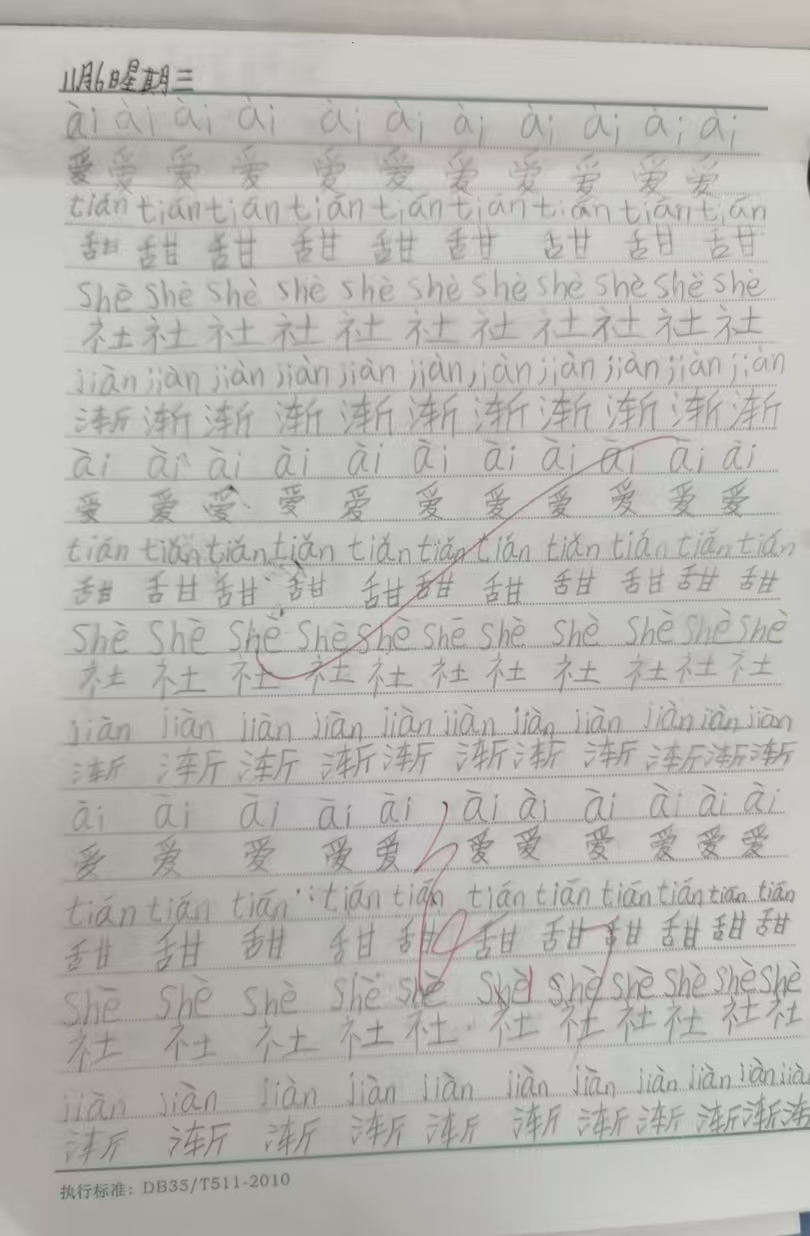 11月6日星期三
ài ài ài ài ài ài ài ài ài ài ài
爱 爱 爱 爱 爱 爱 爱 爱 爱 爱 爱
tián tián tián tián tián tián tián tián tián
甜 甜 甜 甜 甜 甜 甜 甜 甜
shè shè shè shè shè shè shè shè shè shè shè
社 社 社 社 社 社 社 社 社 社 社
jiàn jiàn jiàn jiàn jiàn jiàn jiàn jiàn jiàn jiàn jiàn
渐 渐 渐 渐 渐 渐 渐 渐 渐 渐 渐
ài ài ài ài ài ài ài ài ài ài ài
爱 爱 爱 爱 爱 爱 爱 爱 爱 爱 爱
tián tián tián tián tián tián tián tián tián tián tián
甜 甜 甜 甜 甜 甜 甜 甜 甜 甜 甜
shè shè shè shè shè shè shè shè shè shè shè
社 社 社 社 社 社 社 社 社 社 社
jiàn jiàn jiàn jiàn jiàn jiàn jiàn jiàn jiàn jiàn jiàn
渐 渐 渐 渐 渐 渐 渐 渐 渐 渐 渐
ài ài ài ài ài ài ài ài ài ài ài
爱 爱 爱 爱 爱 爱 爱 爱 爱 爱 爱
tián tián tián tián tián tián tián tián tián tián tián
甜 甜 甜 甜 甜 甜 甜 甜 甜 甜 甜
shè shè shè shè shè shè shè shè shè shè shè
社 社 社 社 社 社 社 社 社 社 社
jiàn jiàn jiàn jiàn jiàn jiàn jiàn jiàn jiàn jiàn
渐 渐 渐 渐 渐 渐 渐 渐 渐 渐
执行标准：DB35/T511-2010